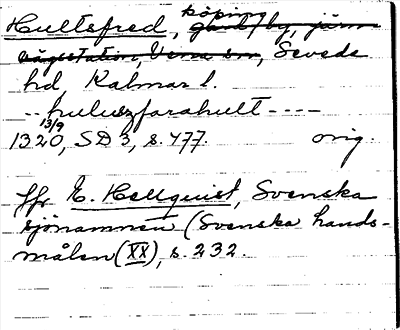 köping
Hultsfred, gård, by, järn-
vägsstation, Vena sn, Sevede
hd, Kalmar l.
-- huluzfarahult ----
13/9
1320, SD 3, s. 477. orig.
Jfr E. Hellquist, Svenska
sjönamnen (Svenska lands-
målen (XX), s. 232.